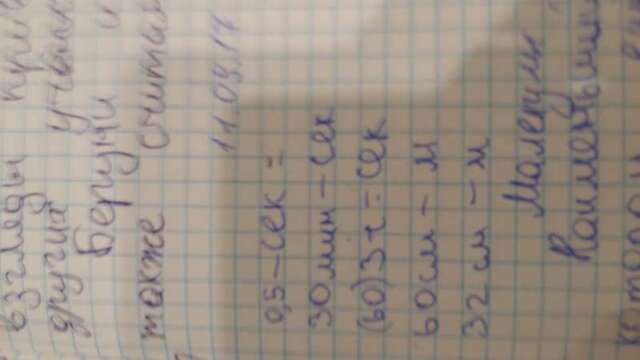 взгляды
других учен
Беруни и
также считал
11.09.17
0,5 – сек =
30 мин – сек
(60) 3 ч = сек
60 см – м
32 см – м
Малекулы
Наименьший
котором